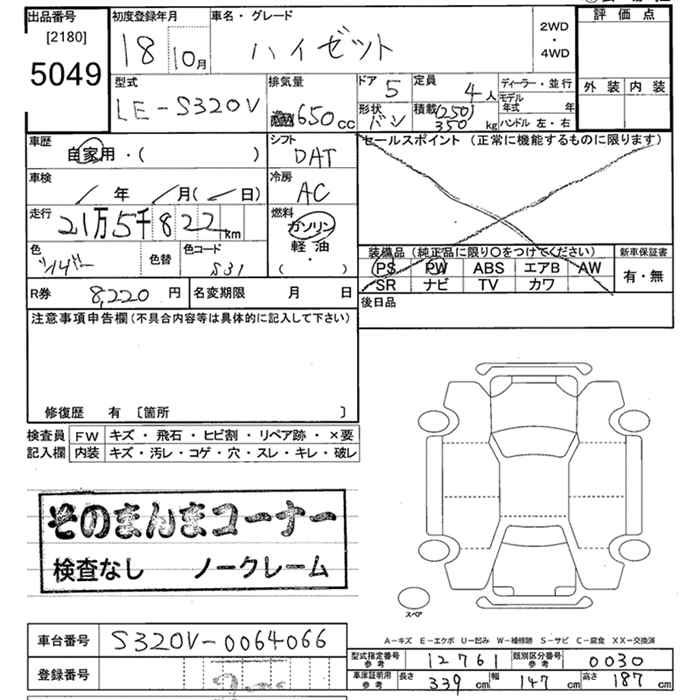 出品番号
[2180]
5049
初度登録年月
18 10月
車名・グレード
ハイゼット
2WD
・
4WD
評価点
外装 内装
型式
LE-S320V
排気量
650cc
ドア 5
形状 バン
定員 4人
積載 (250)
350kg
ディーラー・並行
モデル年式 年
ハンドル 左・右
車歴
自家用・( )
シフト
DAT
セールスポイント (正常に機能するものに限ります)
車検
年 月( 日)
冷房
AC
走行
21万5千822km
燃料
ガソリン
軽油
( ・ )
色
シルバー
色替
色コード
S31
装備品(純正品に限り○をつけてください)
PS PW ABS エアB AW
SR ナビ TV カワ
新車保証書
有・無
R券 8,220円
名変期限 月 日
後日品
注意事項申告欄(不具合内容等は具体的に記入して下さい)
修復歴 有 〔箇所 〕
検査員 FW キズ・飛石・ヒビ割・リペア跡・×要
記入欄 内装 キズ・汚レ・コゲ・穴・スレ・キレ・破レ
そのまんまコーナー
検査なし ノークレーム
スペア
A-キズ E-エクボ U-凹み W-補修跡 S-サビ C-腐食 XX-交換済
車台番号 S320V-0064066
型式指定番号 参考 12761
類別区分番号 参考 0030
登録番号
車庫証明用 参考 長さ 339cm 幅 147cm 高さ 187cm